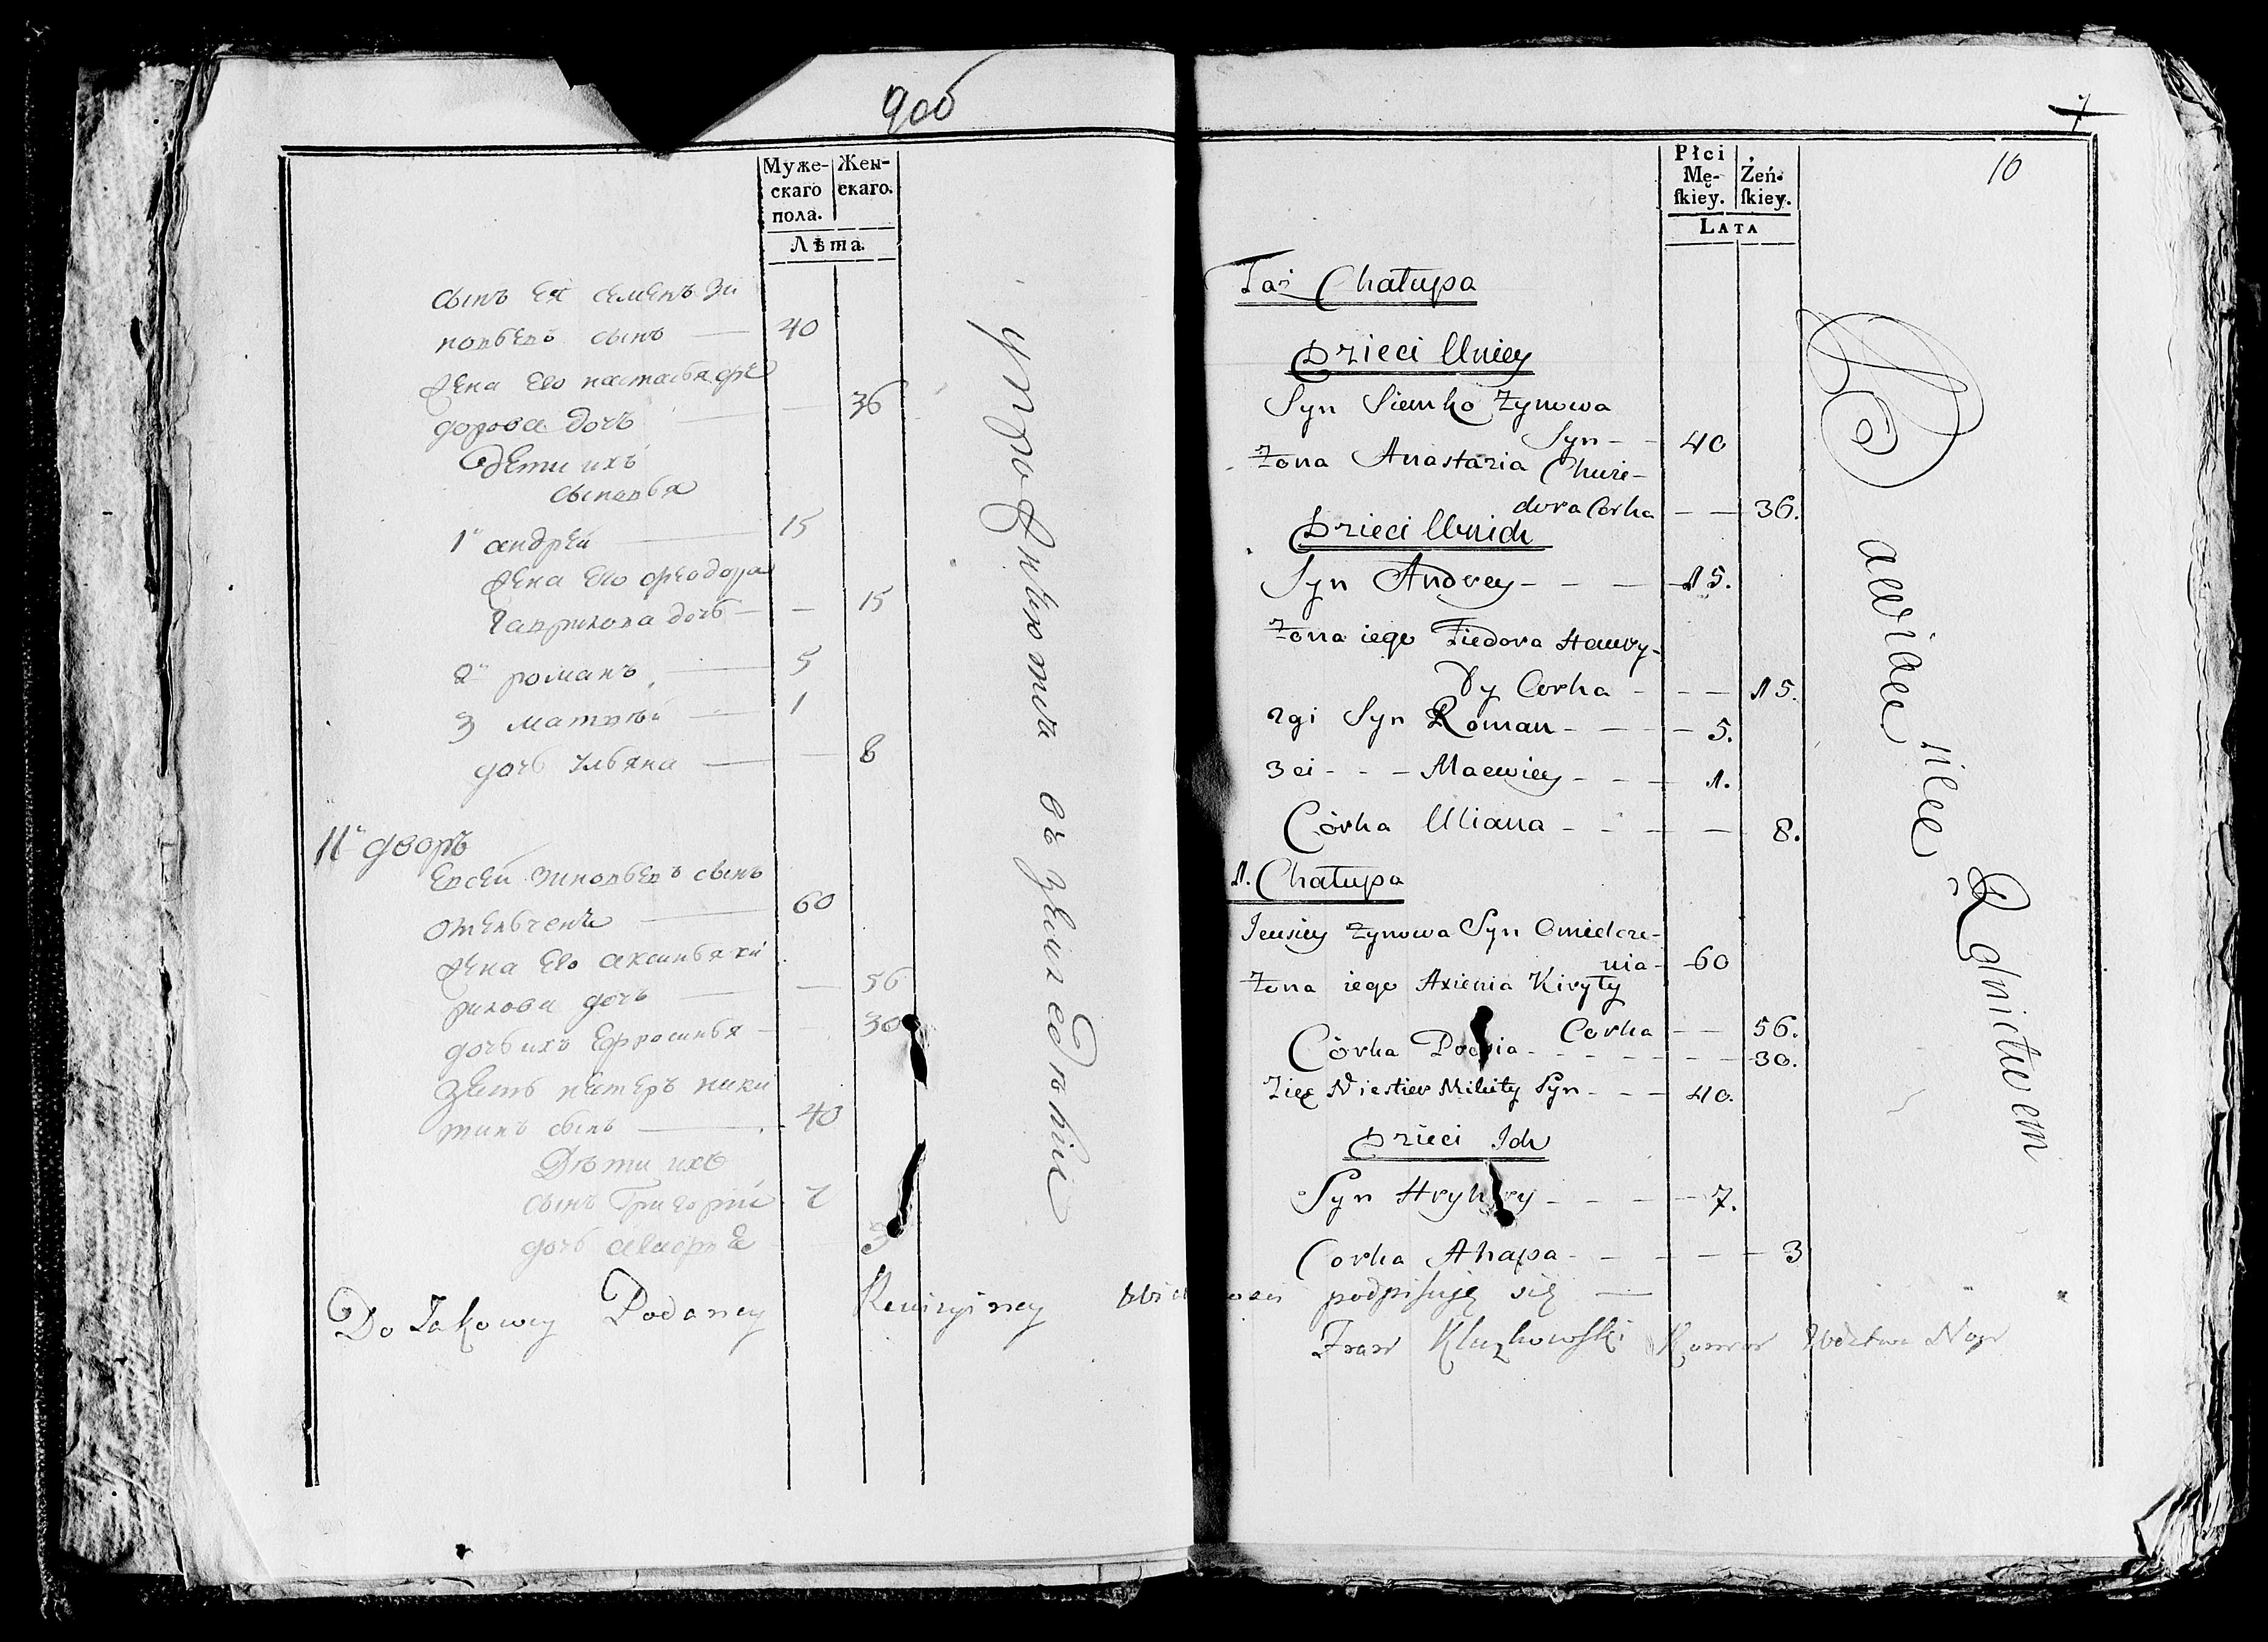 9об
Муже-
скаго
пола.
Жен-
скаго.
Лѣта.
сынъ ея семенъ зи
новьевъ сынъ — 40
жена его настасья фе
дорова дочь — 36
дѣти ихъ
сыновья
1й андрей — 15
жена его феодора
гаврилова дочь — — 15
2й романъ — 5
3 матвѣй — 1
дочь ульяна — — 8
11й дворъ
евсей зиновьевъ сынъ
— 60
жена его аксинья ки
рилова дочь — — 56
дочь ихъ Ефросинья — — 30
зять нестеръ ники
тинъ сынъ — 40
Дѣти ихъ
сынъ Григорій 7
дочь агафія 3
упражняются въ земледѣліи
Do Takowey Podaney Rewizyiney
podpisuję się —
7
10
Płci
Mę-
skiey.
Żeń-
skiey.
LATA
Taż Chałupa
Dzieci Uniey
Syn Siemko Zynowa
Syn - - 40
Żona Anastazia Chwie-
dora Corka — — 36.
Dzieci Unich
Syn Andrey — — — 15.
Żona iego Fiedora Hawry-
ły Corka — — — 15.
2gi Syn Roman — — — 5.
3ci - - - Maewiey — — 1.
Córka Uliana — — — — 8.
11. Chałupa
Jewsiey Zynowa Syn Omielcze-
nia - 60
Żona iego Axienia Kiryły
Corka — — 56.
Córka — — — — 30.
Zięć Niestier Mikity Syn — — 40.
Dzieci Ich
Syn Hryhory — — — 7.
Corka Ahapa — — — — 3
Bawiące się Rolnictwem